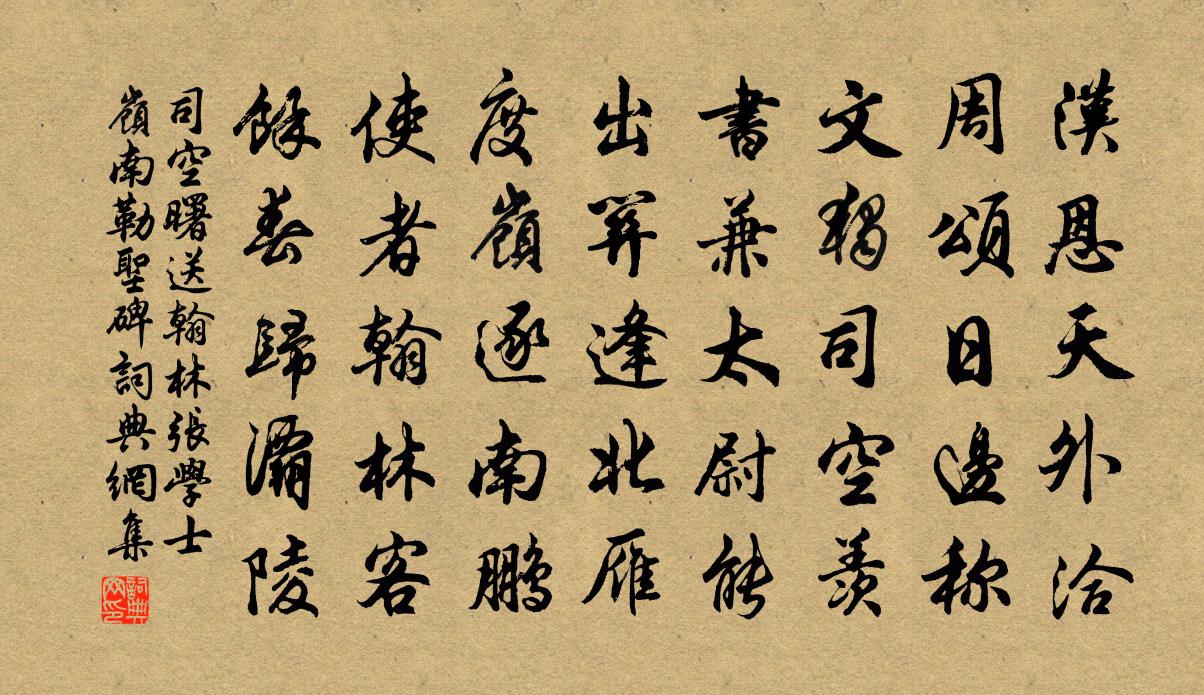 漢恩天外洽
周頌日邊称
文獨司空羨
書兼太尉能
出關逢北雁
度嶺逐南鵬
使者翰林客
餘春歸灞陵
司空曙送翰林張學士
嶺南勒聖碑詞典網集
詞典網印